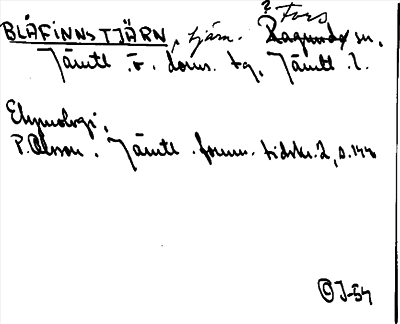 ? Fors
BLÅFINNSTJÄRN, tjärn. Ragunda sn.
Jämtl. ö. doms. tg. Jämtl. l.
Etymologi.
P. Olsson. Jämtl. fornm. tidskr. 2, s. 144
© J-54